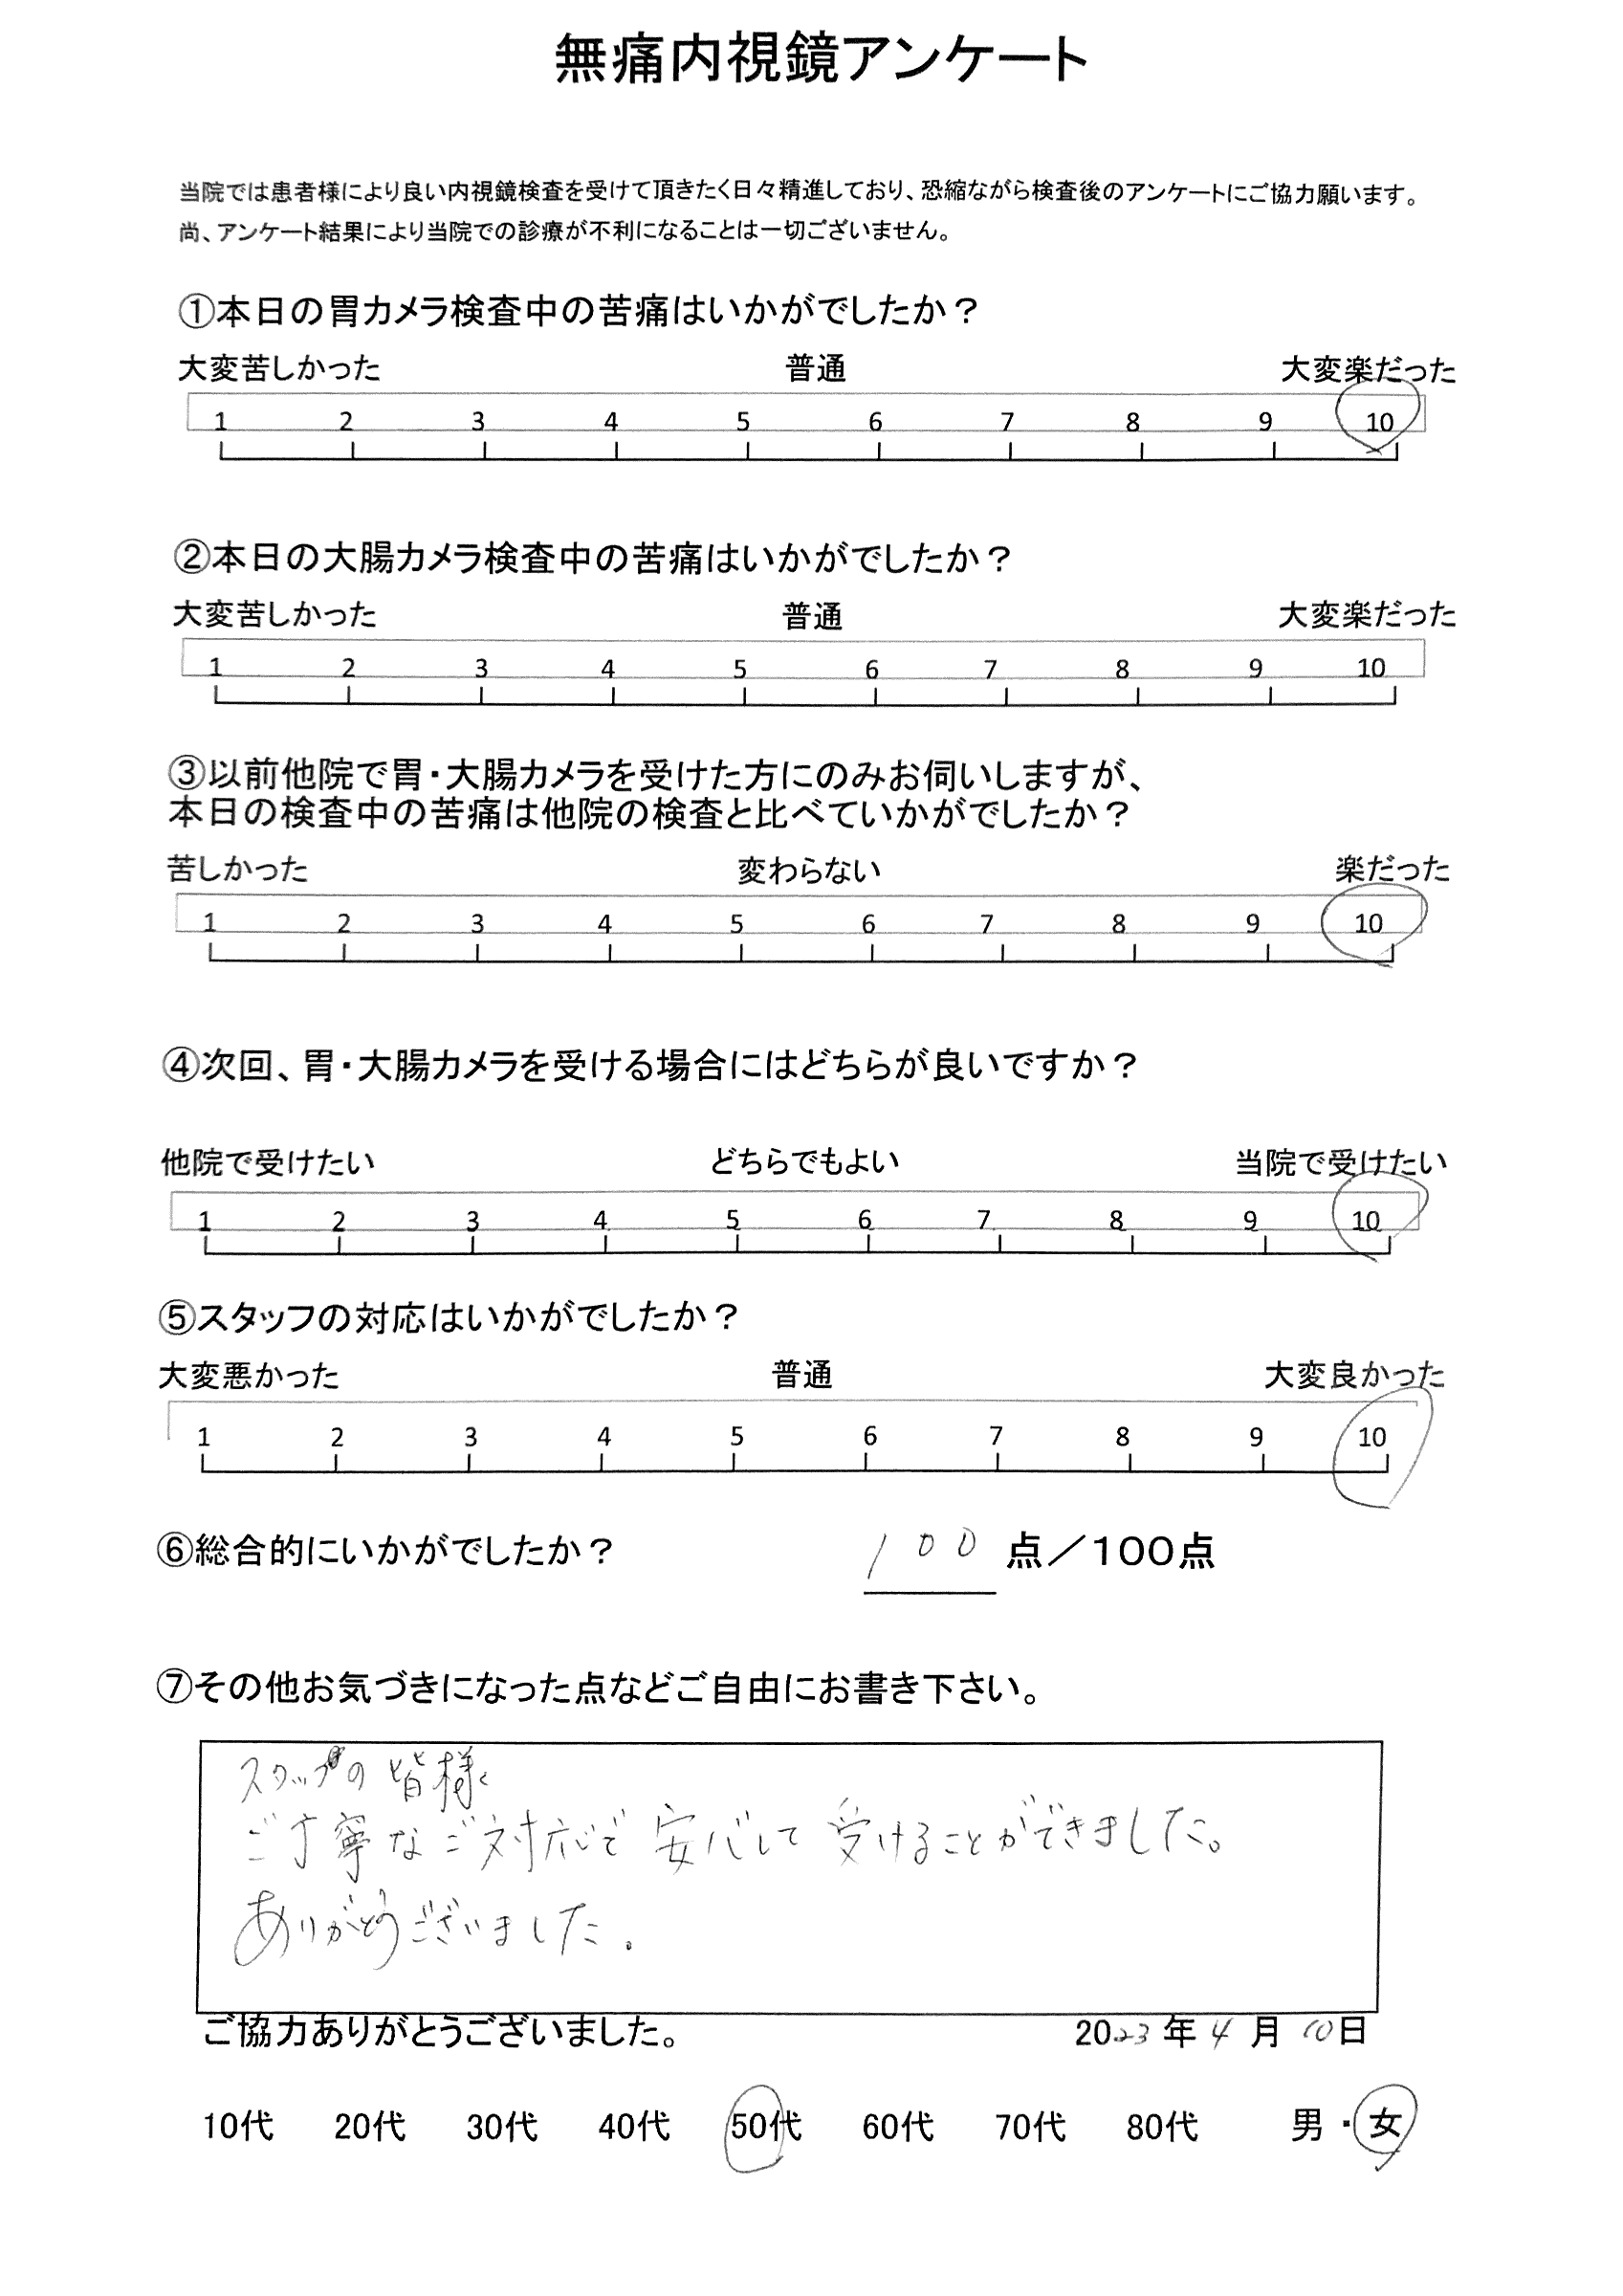 無痛内視鏡アンケート
当院では患者様により良い内視鏡検査を受けて頂きたく日々精進しており、恐縮ながら検査後のアンケートにご協力願います。
尚、アンケート結果により当院での診療が不利になることは一切ございません。
①本日の胃カメラ検査中の苦痛はいかがでしたか？
大変苦しかった 普通 大変楽だった
1 2 3 4 5 6 7 8 9 10
②本日の大腸カメラ検査中の苦痛はいかがでしたか？
大変苦しかった 普通 大変楽だった
1 2 3 4 5 6 7 8 9 10
③以前他院で胃・大腸カメラを受けた方にのみお伺いしますが、
本日の検査中の苦痛は他院の検査と比べていかがでしたか？
苦しかった 変わらない 楽だった
1 2 3 4 5 6 7 8 9 10
④次回、胃・大腸カメラを受ける場合にはどちらが良いですか？
他院で受けたい どちらでもよい 当院で受けたい
1 2 3 4 5 6 7 8 9 10
⑤スタッフの対応はいかがでしたか？
大変悪かった 普通 大変良かった
1 2 3 4 5 6 7 8 9 10
⑥総合的にいかがでしたか？ 100 点／100点
⑦その他お気づきになった点などご自由にお書き下さい。
スタッフの皆様
ご丁寧なご対応で安心して受けることができました。
ありがとうございました。
ご協力ありがとうございました。 2023年4月10日
10代 20代 30代 40代 50代 60代 70代 80代 男・女